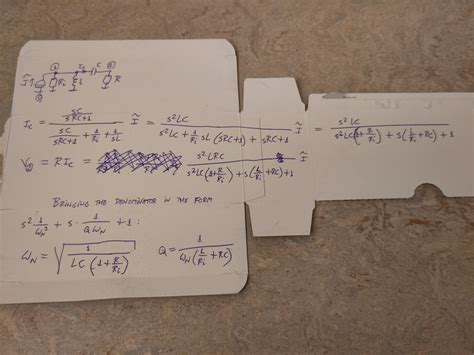 1 I_c C 2
Ĩ R_i L R
0
I_c = (sC/(sRC+1)) / (sC/(sRC+1) + 1/R_i + 1/sL) Ĩ = s²LC / (s²LC + 1/R_i sL (sRC+1) + sRC+1) Ĩ = s²LC / (s²LC(1+R/R_i) + s(L/R_i + RC) + 1)
V_② = R I_c = s²LRC / (s²LC(1+R/R_i) + s(L/R_i + RC) + 1) Ĩ
BRINGING THE DENOMINATOR IN THE FORM
s² 1/ω_N² + s · 1/(Q ω_N) + 1 :
ω_N = √(1 / (LC(1+R/R_i))) Q = 1 / (ω_N (L/R_i + RC))